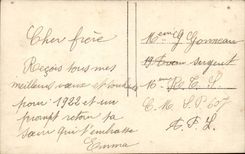 Cher frère
Reçois tous mes
meilleurs vœux et
pour 1922 et un
prompt retour ta
sœur qui t'embrasse
Emma
G Gonneau
sergent
10me R.
C.M. S.P. 607